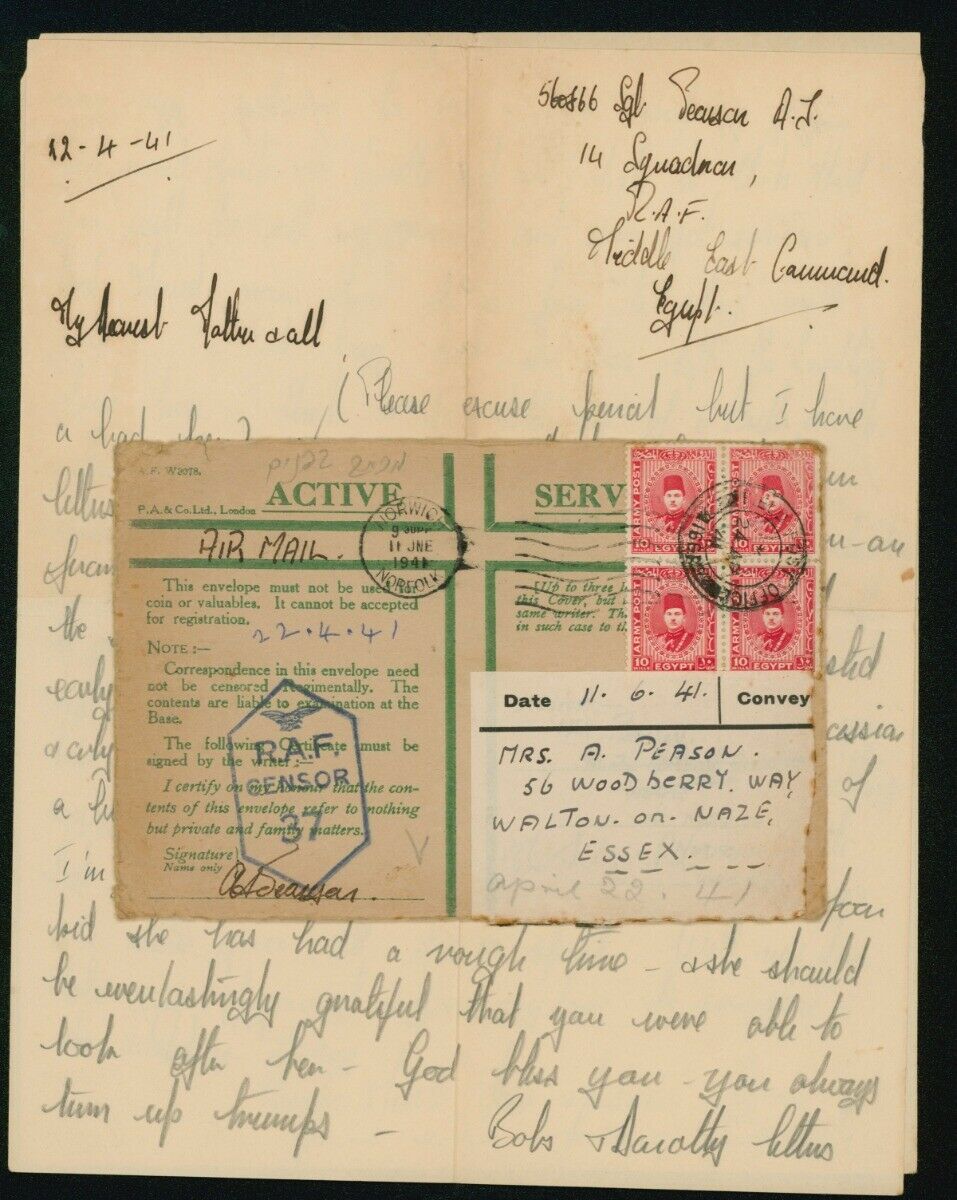 22-4-41
560866 Sgt Pearson A.J.
14 Squadron,
R.A.F.
Middle East Command.
Egypt.
My Dearest Mother & all
(Please excuse pencil but I have
a bad pen)
A.F. W3078.
P.A. & Co. Ltd., London
ACTIVE
SERV
AIR MAIL.
This envelope must not be used for
coin or valuables. It cannot be accepted
for registration.
22.4.41
NOTE :—
Correspondence in this envelope need
not be censored Regimentally. The
contents are liable to examination at the
Base.
The following Certificate must be
signed by the writer :—
I certify on my honour that the con-
tents of this envelope refer to nothing
but private and family matters.
Signature
Name only
R.A.F.
CENSOR
37
NORWICH
9 30PM
11 JNE
1941
NORFOLK
(Up to three
this Cover, but
same writer. Th
in such case to th
ARMY POST
10 EGYPT
ARMY POST
10 EGYPT
ARMY POST
10 EGYPT
ARMY POST
10 EGYPT
Date 11. 6. 41. Convey
MRS. A. PEASON.
56 WOODBERRY. WAY,
WALTON-on-NAZE,
ESSEX.
April 22. 41
letters
the
early
a
of
I'm
kid she has had a rough time - & she should
be everlastingly grateful that you were able to
look after her - God bless you - you always
turn up trumps -
Bobs & Dorothy letters